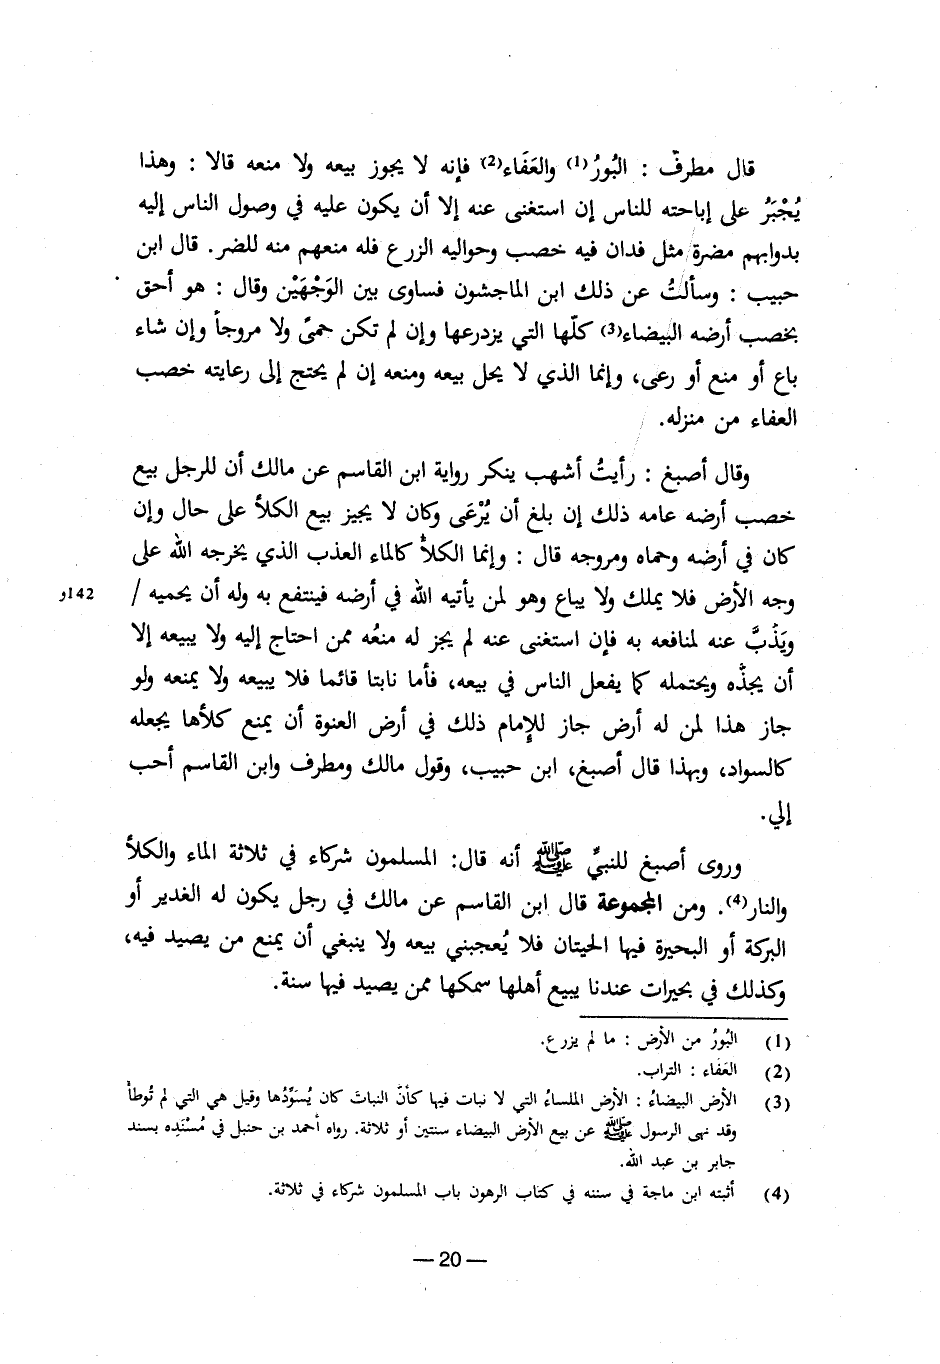 قال مطرفّ : البُورُ(1) والعَفَاء(2) فإنه لا يجوز بيعه ولا منعه قالا : وهذا
يُجْبَرُ على إباحته للناس إن استغنى عنه إلا أن يكون عليه في وصول الناس إليه
بدوابهم مضرة مثل فدان فيه خصب وحواليه الزرع فله منعهم منه للضر. قال ابن
حبيب : وسألتُ عن ذلك ابن الماجشون فساوى بين الوَجْهَيْن وقال : هو أحق
بخصب أرضه البيضاء(3) كلّها التي يزدرعها وإن لم تكن حمىً ولا مروجاً وإن شاء
باع أو منع أو رعى، وإنما الذي لا يحل بيعه ومنعه إن لم يحتج إلى رعايته خصب
العفاء من منزله.
وقال أصبغ : رأيتُ أشهب ينكر رواية ابن القاسم عن مالك أن للرجل بيع
خصب أرضه عامه ذلك إن بلغ أن يُرْعَى وكان لا يجيز بيع الكلأ على حال وإن
كان في أرضه وحماه ومروجه قال : وإنما الكلأُ كالماء العذب الذي يخرجه الله على
وجه الأرض فلا يملك ولا يباع وهو لمن يأتيه الله في أرضه فينتفع به وله أن يحميه / 142و
ويَذُبَّ عنه لمنافعه به فإن استغنى عنه لم يجز له منعُه ممن احتاج إليه ولا يبيعه إلا
أن يجذّه ويحتمله كما يفعل الناس في بيعه، فأما نابتا قائما فلا يبيعه ولا يمنعه ولو
جاز هذا لمن له أرض جاز للإمام ذلك في أرض العنوة أن يمنع كلأها يجعله
كالسواد، وبهذا قال أصبغ، ابن حبيب، وقول مالك ومطرف وابن القاسم أحب
إلي.
وروى أصبغ للنبيِّ ﷺ أنه قال: المسلمون شركاء في ثلاثة الماء والكلأ
والنار(4). ومن المجموعة قال ابن القاسم عن مالك في رجل يكون له الغدير أو
البركة أو البحيرة فيها الحيتان فلا يُعجبني بيعه ولا ينبغي أن يمنع من يصيد فيه،
وكذلك في بحيرات عندنا يبيع أهلها سمكها ممن يصيد فيها سنة.
(1) البُورُ من الأرض : ما لم يزرع.
(2) العَفَاء : التراب.
(3) الأرض البيضاءُ : الأرض الملساءُ التي لا نبات فيها كأنّ النباتَ كان يُسَوِّدُها وقيل هي التي لم تُوطأ
وقد نهى الرسول ﷺ عن بيع الأرض البيضاء سنتين أو ثلاثة. رواه أحمد بن حنبل في مُسْنَدِه بسند
جابر بن عبد الله.
(4) أثبته ابن ماجة في سننه في كتاب الرهون باب المسلمون شركاء في ثلاثة.
— 20 —